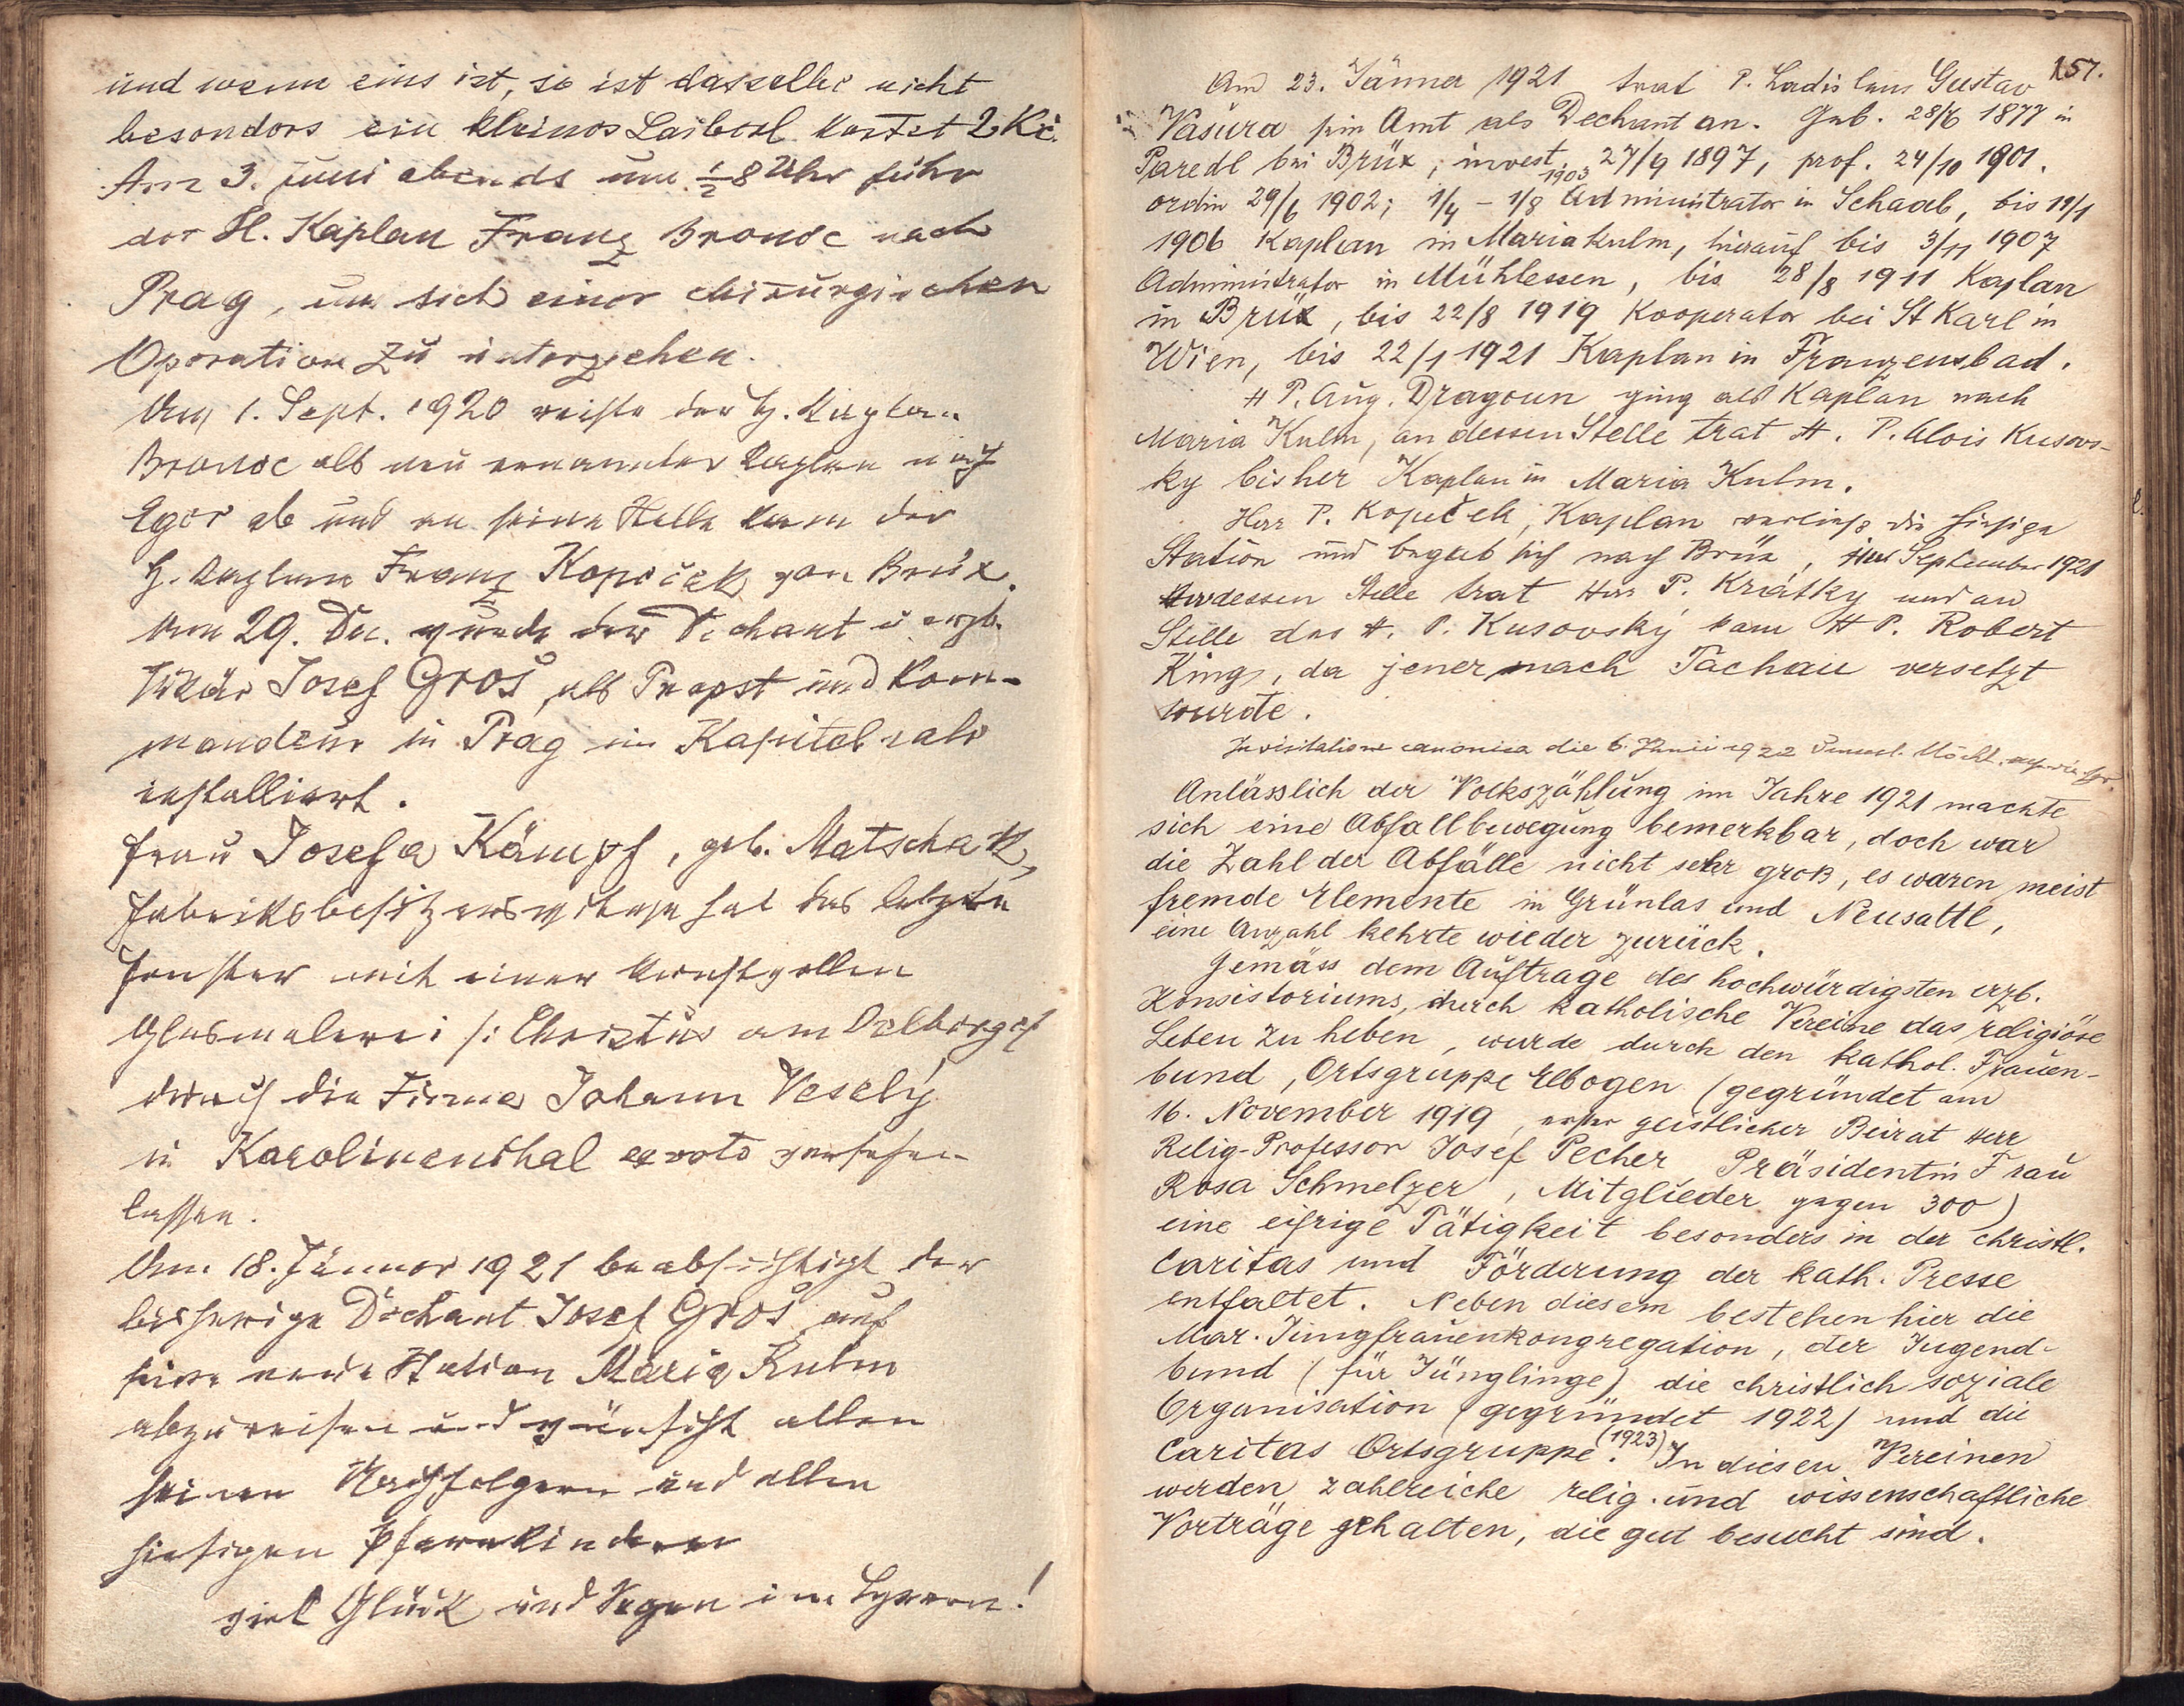 und wenn eins ist, so ist dasselbe nicht
besonders ein kleines Laiberl kostet 2 Kč.
Am 3. Juni abends um ½ 8 Uhr fuhr
der H. Kaplan Franz Bronec nach
Prag, um sich einer chirurgischen
Operation zu unterziehen.
Am 1. Sept. 1920 reiste der H. Kaplan
Bronec als neu ernannter Kaplan nach
Eger ab und an seine Stelle kam der
H. Kaplan Franz Kopeček von Brüx.
Am 29. Dez. wurde der Dechant u erzb.
Vikär Josef Groš, als Propst und Kom-
mandeur in Prag im Kapitelsale
installiert.
Frau Josefa Kämpf, geb. Matschak,
Fabriksbesitzerswitwe hat das letzte
Fenster mit einer kunstvollen
Glasmalerei /: Christus am Oelberge :/
durch die Firma Johann Veselý
in Karolinenthal ex voto versehen
lassen.
Am 18. Jänner 1921 beabsichtigt der
bisherige Dechant Josef Groš auf
seine neue Station Maria Kulm
abzureisen und wünscht allen
seinen Nachfolgern und allen
hiesigen Pfarrkindern
viel Glück und Segen im Herrn!
157.
Am 23. Jänner 1921 trat P. Ladislaus Gustav
Vašura sein Amt als Dechant an. Geb. 28/6 1877 in
Paredl bei Brüx, invest. 27/9 1897, prof. 24/10 1901.
ordin 29/6 1902; 1/4 - 1/8 1903 Administrator in Schaab, bis 19/1
1906 Kaplan in Mariakulm, hierauf bis 3/11 1907
Administrator in Mühlessen, bis 28/8 1911 Kaplan
in Brüx, bis 22/8 1919 Kooperator bei St Karl in
Wien, bis 22/1 1921 Kaplan in Franzensbad.
H P. Aug. Dragoun ging als Kaplan nach
Maria Kulm, an dessen Stelle trat H. P. Alois Kusovs-
ky bisher Kaplan in Maria Kulm.
Herr P. Kopeček, Kaplan verließ die hiesige
Station und begab sich nach Brüx, im September 1921
An dessen Stelle trat Herr P. Krátky und an
Stelle des H. P. Kusovský kam H P. Robert
King, da jener nach Tachau versetzt
wurde.
In visitatione canonica die 6. Junii 1922
Anlässlich der Volkszählung im Jahre 1921 machte
sich eine Abfallbewegung bemerkbar, doch war
die Zahl der Abfälle nicht sehr groß, es waren meist
fremde Elemente in Grünlas und Neusattl,
eine Anzahl kehrte wieder zurück.
Gemäss dem Auftrage des hochwürdigsten erzb.
Konsistoriums, durch katholische Vereine das religiöse
Leben zu heben, wurde durch den kathol. Frauen-
bund, Ortsgruppe Elbogen (gegründet am
16. November 1919, erster geistlicher Beirat Herr
Relig-Professor Josef Pecher Präsidentin Frau
Rosa Schmelzer, Mitglieder gegen 300)
eine eifrige Tätigkeit besonders in der christl.
Caritas und Förderung der kath. Presse
entfaltet. Neben diesem bestehen hier die
Mar. Jungfrauenkongregation, der Jugend-
bund (für Jünglinge) die christlich soziale
Organisation (gegründet 1922) und die
Caritas Ortsgruppe (1923). In diesen Vereinen
werden zahlreiche relig. und wissenschaftliche
Vorträge gehalten, die gut besucht sind.